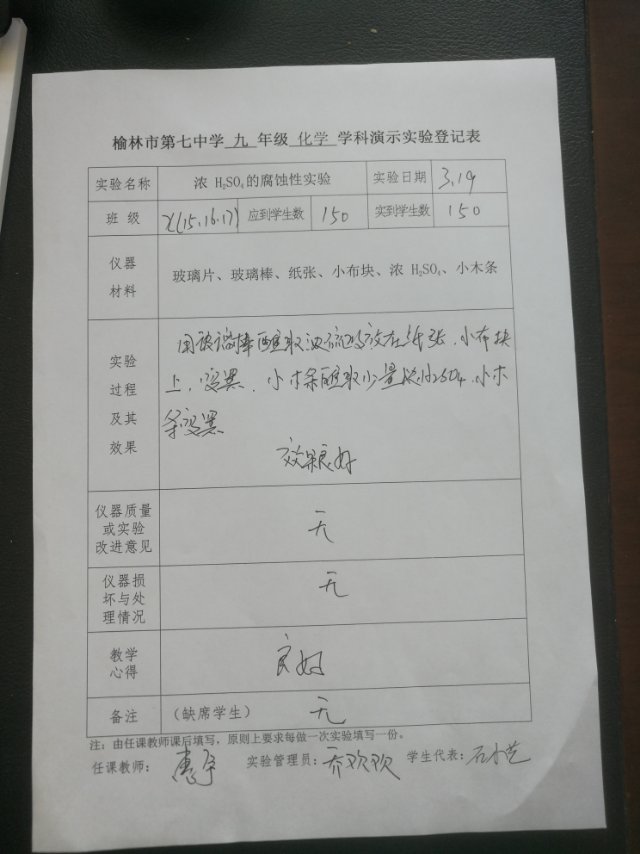 榆林市第七中学 九 年级 化学 学科演示实验登记表
实验名称 浓 H₂SO₄的腐蚀性实验 实验日期 3.19
班 级 (15.16.17) 应到学生数 150 实到学生数 150
仪器
材料
玻璃片、玻璃棒、纸张、小布块、浓 H₂SO₄、小木条
实验
过程
及其
效果
用玻璃棒蘸取浓硫酸放在纸张、小布块
上,变黑. 小木条蘸取少量浓H2SO4.小木
条变黑
效果良好
仪器质量
或实验
改进意见
无
仪器损
坏与处
理情况
无
教学
心得
良好
备注 (缺席学生) 无
注:由任课教师课后填写,原则上要求每做一次实验填写一份。
任课教师: 实验管理员:乔欢欢 学生代表: